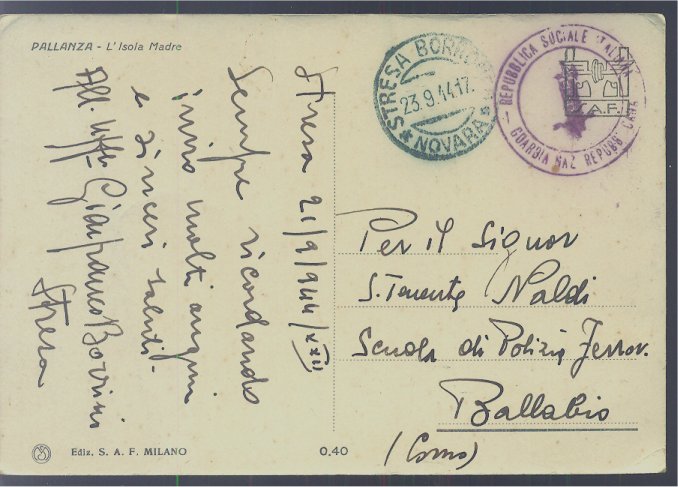 PALLANZA - L'Isola Madre
Stresa 21/9/944/XXII
Sempre ricordando
invio molti auguri
e sinceri saluti.
All. Uff. Gianfranco
Stresa
STRESA
23.9.44.17
* NOVARA *
REPUBBLICA SOCIALE ITALIANA
GUARDIA NAZ. REPUBBLICANA
S.A.F.
Per il Signor
S. Tenente Naldi
Scuola di Polizia Ferrov.
Ballabio
(Como)
Ediz. S. A. F. MILANO
0.40